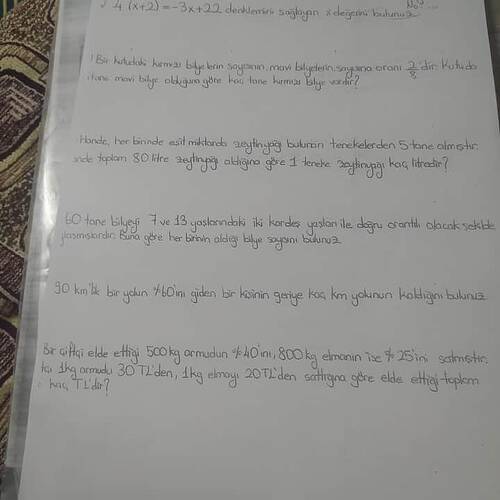 4 (x+2) = -3x+22 denklemini sağlayan x değerini bulunuz.
Bir kutudaki kırmızı bilyelerin sayısının, mavi bilyelerin sayısına oranı 2/3 'dir. Kutuda
tane mavi bilye olduğuna göre kaç tane kırmızı bilye vardır?
Hande, her birinde eşit miktarda zeytinyağı bulunan tenekelerden 5 tane almıştır.
toplam 80 litre zeytinyağı aldığına göre 1 teneke zeytinyağı kaç litredir?
60 tane bilyeyi 7 ve 13 yaşlarındaki iki kardeş yaşları ile doğru orantılı olacak şekilde
Buna göre her birinin aldığı bilye sayısını bulunuz
90 km'lik bir yolun %60'ını giden bir kişinin geriye kaç km yolunun kaldığını bulunuz
Bir çiftçi elde ettiği 500kg armudun %40'ını, 800kg elmanın ise %25'ini satmıştır.
1kg armudu 30 TL'den, 1kg elmayı 20TL'den sattığına göre elde ettiği toplam
kaç TL'dir?